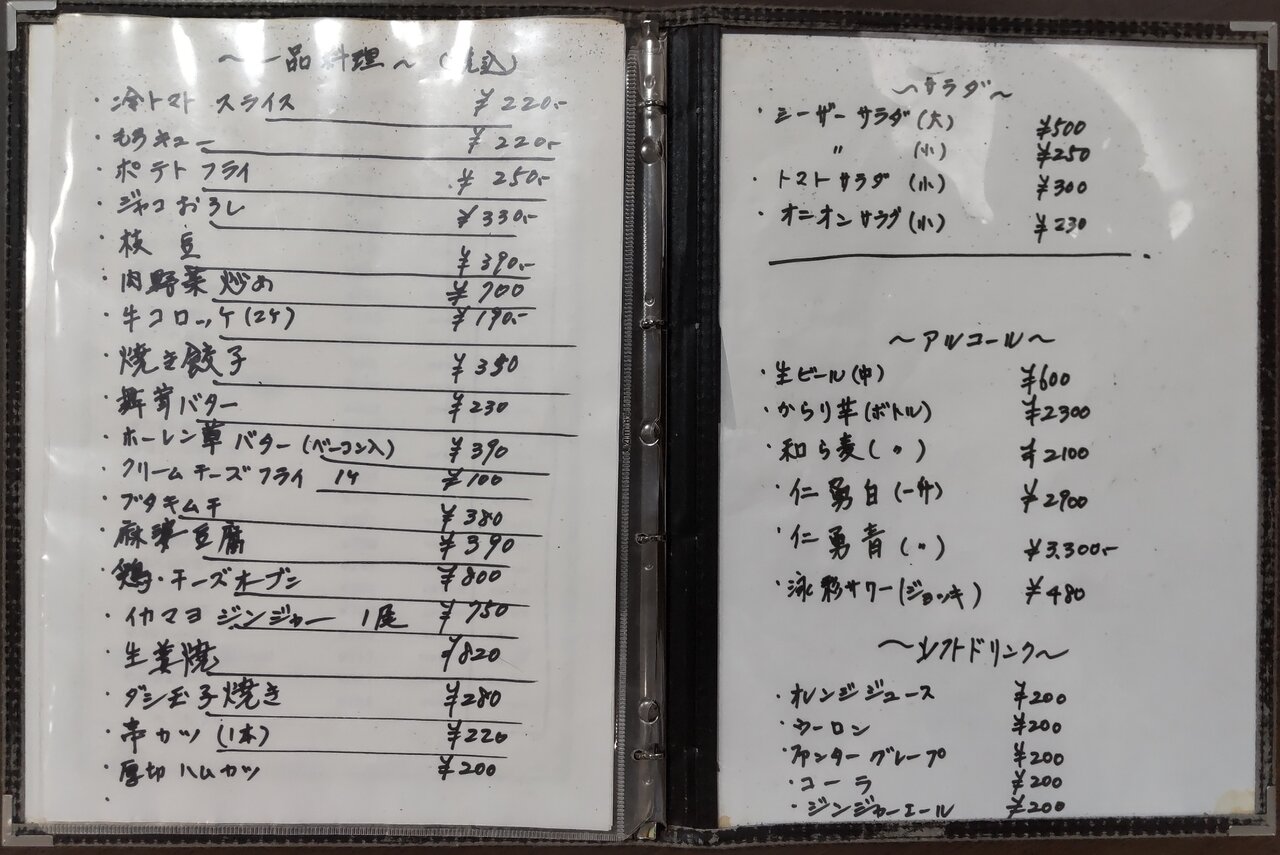 ～一品料理～ (税込)
・冷トマト スライス ¥220.-
・もろキュー ¥220.-
・ポテトフライ ¥250.-
・ジャコおろし ¥330.-
・枝豆 ¥390.-
・肉野菜炒め ¥700
・牛コロッケ(2ケ) ¥190.-
・焼き餃子 ¥350
・舞茸バター ¥230
・ホーレン草バター(ベーコン入) ¥390
・クリームチーズフライ 1ケ ¥100
・ブタキムチ ¥380
・麻婆豆腐 ¥390
・鶏・チーズオーブン ¥800
・イカマヨジンジャー 1尾 ¥750
・生姜焼 ¥820
・ダシ玉子焼き ¥280
・串カツ(1本) ¥220
・厚切ハムカツ ¥200
・
～サラダ～
・シーザーサラダ(大) ¥500
〃 (小) ¥250
・トマトサラダ(小) ¥300
・オニオンサラダ(小) ¥230
～アルコール～
・生ビール(中) ¥600
・からり芋(ボトル) ¥2300
・和ら麦(〃) ¥2100
・仁勇白(一升) ¥2900
・仁勇青(〃) ¥3.300.-
・氵彩サワー(ジョッキ) ¥480
～ソフトドリンク～
・オレンジジュース ¥200
・ウーロン ¥200
・ファンターグレープ ¥200
・コーラ ¥200
・ジンジャーエール ¥200